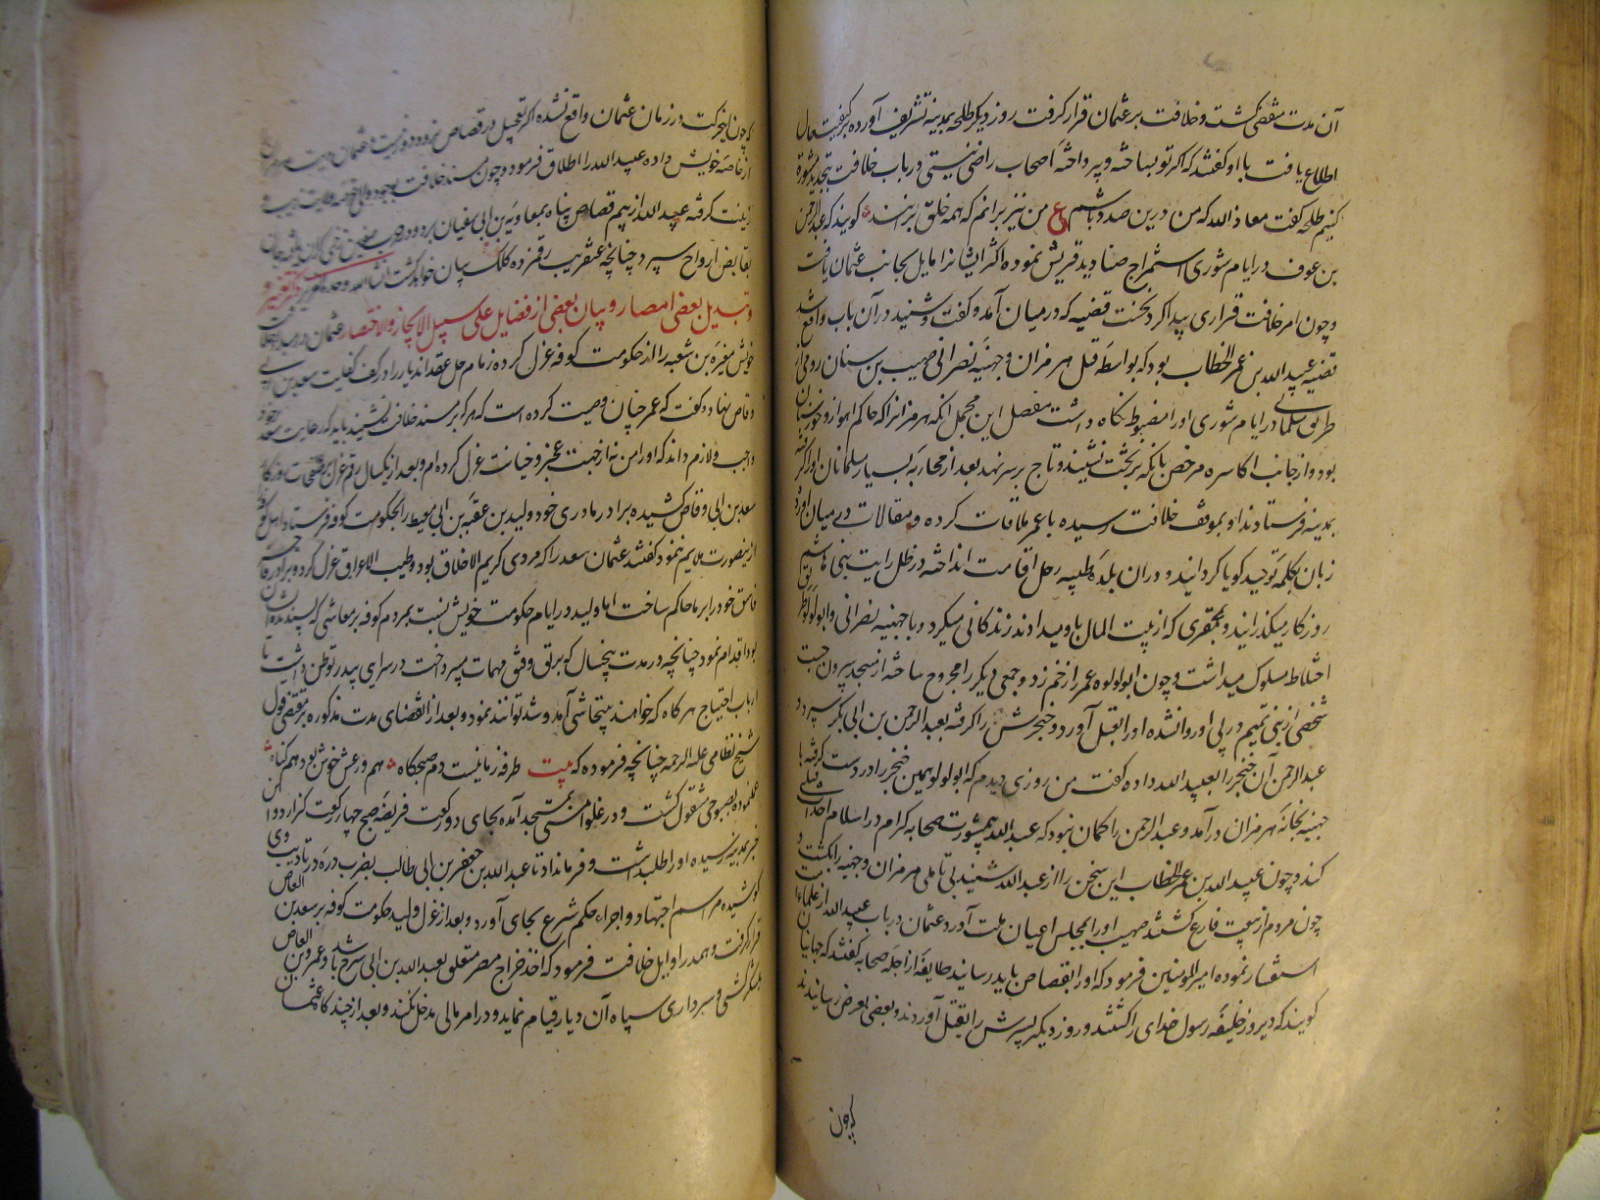 آن مدت منقضی کشت و خلافت بر عثمان قرار کرفت روز دیکر طلحه بمدینه تشریف آورده بر کیفیت حال
اطلاع یافت با او کفتند که اکر تو بساخته و پرداخته اصحاب راضی نیستی در باب خلافت تجدید مشورة
کنیم طلحه کفت معاذ الله که من درین صدد باشم ع من نیز برانم که همه خلق برانند کویند که عبد الرحمن
بن عوف در ایام شوری استمزاج صنادید قریش نموده اکثر ایشانرا مایل بجانب عثمان یافت
و چون امر خلافت قراری پیدا کرد نخست قضیه که در میان آمد و کفت و شنید در آن باب واقع شد
قضیه عبید الله بن عمر الخطاب بود که بواسطه قتل هرمزان و جهنیه نصرانی صهیب بن سنان رومی از
طریق سلمانی در ایام شوری او را مضبوط نکاه داشت مفصل این مجمل انکه هرمزانرا که حاکم اهواز و خوزستان
بود و از جانب اکاسره مرخص بانکه بر تخت نشیند و تاج بر سر نهد بعد از محاربه بسیار مسلمانان او را کرفته
بمدینه فرستادند او بموقف خلافت رسیده با عمر ملاقات کرده و مقالات در میان آورد
زبان بکلمه توحید کویا کردانید و در ان بلده طیبه رحل اقامت انداخته در ظل رایت بنی هاشم
روزکار میکذرانید و بمحقری که از بیت المال باو میدادند زندکانی میکرد و با جهنیه نصرانی و ابولولو طریق
اختلاط مسلوک میداشت و چون ابولولوه عمر را زخم زد و جمعی دیکر را مجروح ساخته از مسجد بیرون جست
شخصی از بنی تمیم در پی او روان شده او را بقتل آورد و خنجرش را کرفته بعبد الرحمن بن ابی بکر سپرد و
عبد الرحمن آن خنجر را بعبید الله داده کفت من روزی دیدم که ابولولو همین خنجر را در دست کرفته با
جهنیه بخانه هرمزان در آمد و عبد الرحمن را کمان نبود که عبد الله بی مشورت صحابه کرام در اسلام احداث قتلی
کند و چون عبید الله بن عمر الخطاب این سخن را از عبد الله شنید بی تاملی هرمزان و جهنیه را بکشت و
چون مردم از بیعت فارغ کشتند صهیب او را بمجلس اعیان ملت آورد عثمان در باب عبید الله از علماء امت
استفسار نموده امیر المومنین فرمود که او را بقصاص باید رسانید طایفه از اجله صحابه کفتند که جهانیان
کویند که دیروز خلیفه رسول خدای را کشتند و روز دیکر پسرش را بقتل آوردند و بعضی بعرض رسانیدند
که چون
که چون این حرکت در زمان عثمان واقع نشده اکر تعجیل در قصاص نرود دور نیست عثمان دیت هرمزان
از خاصه خویش داده عبید الله را اطلاق فرمود و چون مسند خلافت بوجود
زینت کرفت عبید الله از بیم قصاص پناه بمعاویه بن ابی سفیان برد و در حرب صفین
بقابض ارواح سپرد چنانچه عنقریب رقمزده کلک بیان خواهد کشت انشا الله وحده ذکر تغییر و
و تبدیل بعضی امصار و بیان بعضی از فضایل علی سبیل الایجاز و الاختصار عثمان در مبداء خلافت
خویش مغیره بن شعبه را از حکومت کوفه عزل کرده زمام حل عقد اندیار را در کف کفایت سعد بن ابی
وقاص نهاد و کفت که عمر چنان وصیت کرده است که هر که بر مسند خلافت نشیند باید که رعایت سعد
واجب و لازم داند که او را من نه از جهت عجز و خیانت عزل کرده ام و بعد از یکسال رقم عزل بر صفحات روزکار
سعد بن ابی وقاص کشیده برادر مادری خود ولید بن عقبه بن ابی معیط را بحکومت کوفه فرستاد اهل کوفه
ازینصورت ملایم ننمود کفتند عثمان سعد را که مردی کریم الاخلاق بود و طیب الاعراق عزل کرد و برادر فاجر
فاسق خود را بر ما حاکم ساخت اما ولید در ایام حکومت خویش نسبت بمردم کوفه بر معاشی که پسندیده
بود اقدام نمود چنانچه در مدت پنجسال کو برتق و فتق مهمات میپرداخت در سرای بی در توطن داشت تا
ارباب احتیاج هر کاه که خواهند بیتحاشی آمد و شد توانند نمود و بعد از انقضای مدت مذکوره بر مقتضی قول
شیخ نظامی علیه الرحمه چنانچه فرموده که بیت طرفه زمانیست دم صبحکاه هم ورعش خوش بود هم کناه
علنموده بصبوحی مشغول کشت و در غلوا مستی بمسجد آمده بجای دو رکعت فریضه صبح چهار رکعت کزارد و این
خبر بمدینه رسیده او را طلبداشت و فرمانداد تا عبد الله بن جعفر بن ابی طالب بضرب دره در تادیب وی
کوشیده مراسم اجتهاد و اجراء حکم شرع بجای آورد و بعد از عزل ولید حکومت کوفه بر سعد بن العاص
قرار کرفت و همدر اوایل خلافت فرمود که اخذ خراج مصر متعلق بعبد الله بن ابی سرح باشد و عمرو بن العاص
بلشکرکشی و سرداری سپاه آن دیار قیام نماید و در امر مالی مدخل نکند و بعد از چند کاه عثمان